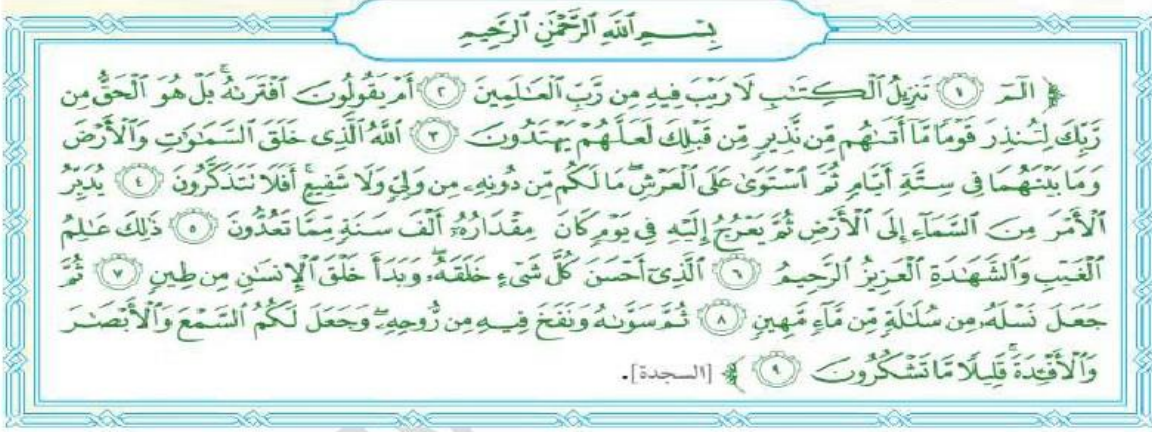 بِسْمِ ٱللَّهِ ٱلرَّحْمَٰنِ ٱلرَّحِيمِ
﴿ الٓمٓ ١ تَنزِيلُ ٱلْكِتَٰبِ لَا رَيْبَ فِيهِ مِن رَّبِّ ٱلْعَٰلَمِينَ ٢ أَمْ يَقُولُونَ ٱفْتَرَىٰهُ ۚ بَلْ هُوَ ٱلْحَقُّ مِن
رَّبِّكَ لِتُنذِرَ قَوْمًا مَّآ أَتَىٰهُم مِّن نَّذِيرٍ مِّن قَبْلِكَ لَعَلَّهُمْ يَهْتَدُونَ ٣ ٱللَّهُ ٱلَّذِى خَلَقَ ٱلسَّمَٰوَٰتِ وَٱلْأَرْضَ
وَمَا بَيْنَهُمَا فِى سِتَّةِ أَيَّامٍ ثُمَّ ٱسْتَوَىٰ عَلَى ٱلْعَرْشِ ۖ مَا لَكُم مِّن دُونِهِۦ مِن وَلِىٍّ وَلَا شَفِيعٍ ۚ أَفَلَا تَتَذَكَّرُونَ ٤ يُدَبِّرُ
ٱلْأَمْرَ مِنَ ٱلسَّمَآءِ إِلَى ٱلْأَرْضِ ثُمَّ يَعْرُجُ إِلَيْهِ فِى يَوْمٍ كَانَ مِقْدَارُهُۥٓ أَلْفَ سَنَةٍ مِّمَّا تَعُدُّونَ ٥ ذَٰلِكَ عَٰلِمُ
ٱلْغَيْبِ وَٱلشَّهَٰدَةِ ٱلْعَزِيزُ ٱلرَّحِيمُ ٦ ٱلَّذِىٓ أَحْسَنَ كُلَّ شَىْءٍ خَلَقَهُۥ ۖ وَبَدَأَ خَلْقَ ٱلْإِنسَٰنِ مِن طِينٍ ٧ ثُمَّ
جَعَلَ نَسْلَهُۥ مِن سُلَٰلَةٍ مِّن مَّآءٍ مَّهِينٍ ٨ ثُمَّ سَوَّىٰهُ وَنَفَخَ فِيهِ مِن رُّوحِهِۦ ۖ وَجَعَلَ لَكُمُ ٱلسَّمْعَ وَٱلْأَبْصَٰرَ
وَٱلْأَفْـِٔدَةَ ۚ قَلِيلًا مَّا تَشْكُرُونَ ٩ ﴾ [السجدة].